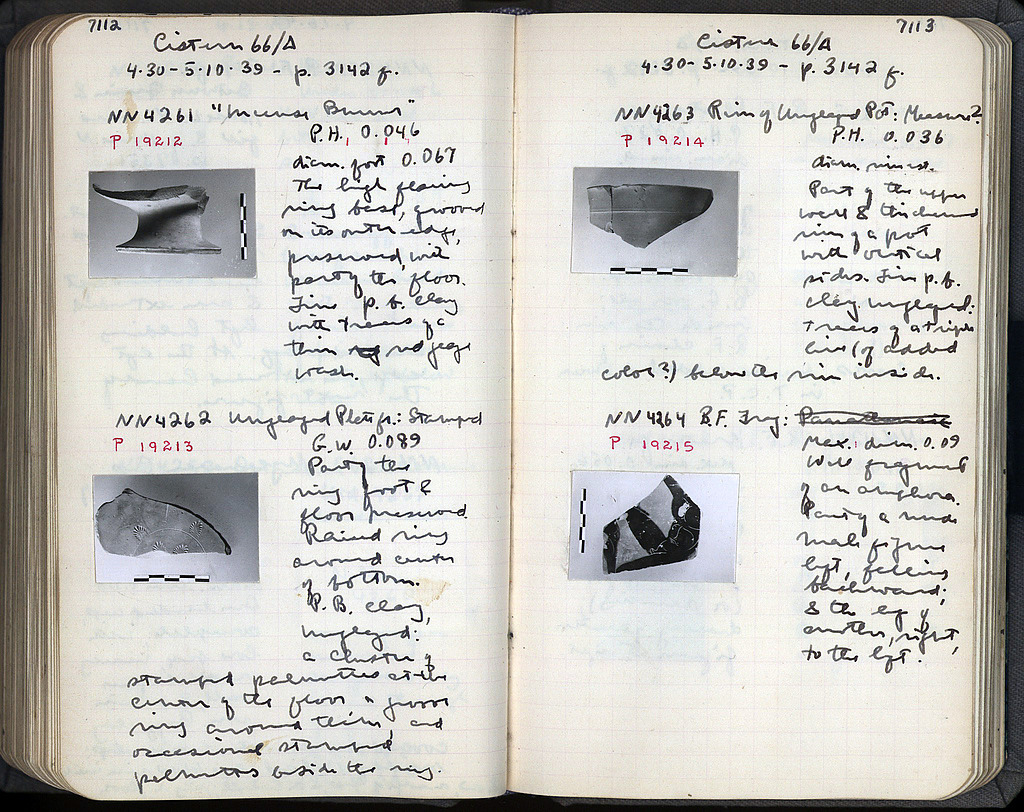 7112
Cistern 66/A
4.30-5.10.39 - p. 3142 f.
NN 4261 "Incense Burner"
P 19212
P.H. 0.046
diam. foot 0.067
The high flaring
ring base, grooved
on its outer edge,
preserved, with
part of the floor.
Fine p. b. clay
with traces of a
thin red glaze
wash.
NN 4262 Unglazed Plate fr.: Stamped
P 19213
G.W. 0.089
Part of the
ring foot &
floor preserved.
Raised ring
around center
of bottom.
P.B. clay,
unglazed:
a cluster of
stamped palmettes at the
center of the floor a groove
ring around them, and
occasional stamped
palmettes outside the ring.
7113
Cistern 66/A
4.30-5.10.39 - p. 3142 f.
NN 4263 Rim of Unglazed Pot: Measure?
P 19214
P.H. 0.036
diam. rim est.
Part of the upper
wall & thickened
rim of a pot
with vertical
sides. Fine p.b.
clay unglazed:
traces of a triple
line (of added
color?) below the rim inside.
NN 4264 B.F. Frag:
P 19215
Max. dim. 0.09
Wall fragment
of an amphora.
Part of a nude
male figure
left, falling
backward;
& the leg of
another, right,
to the left.